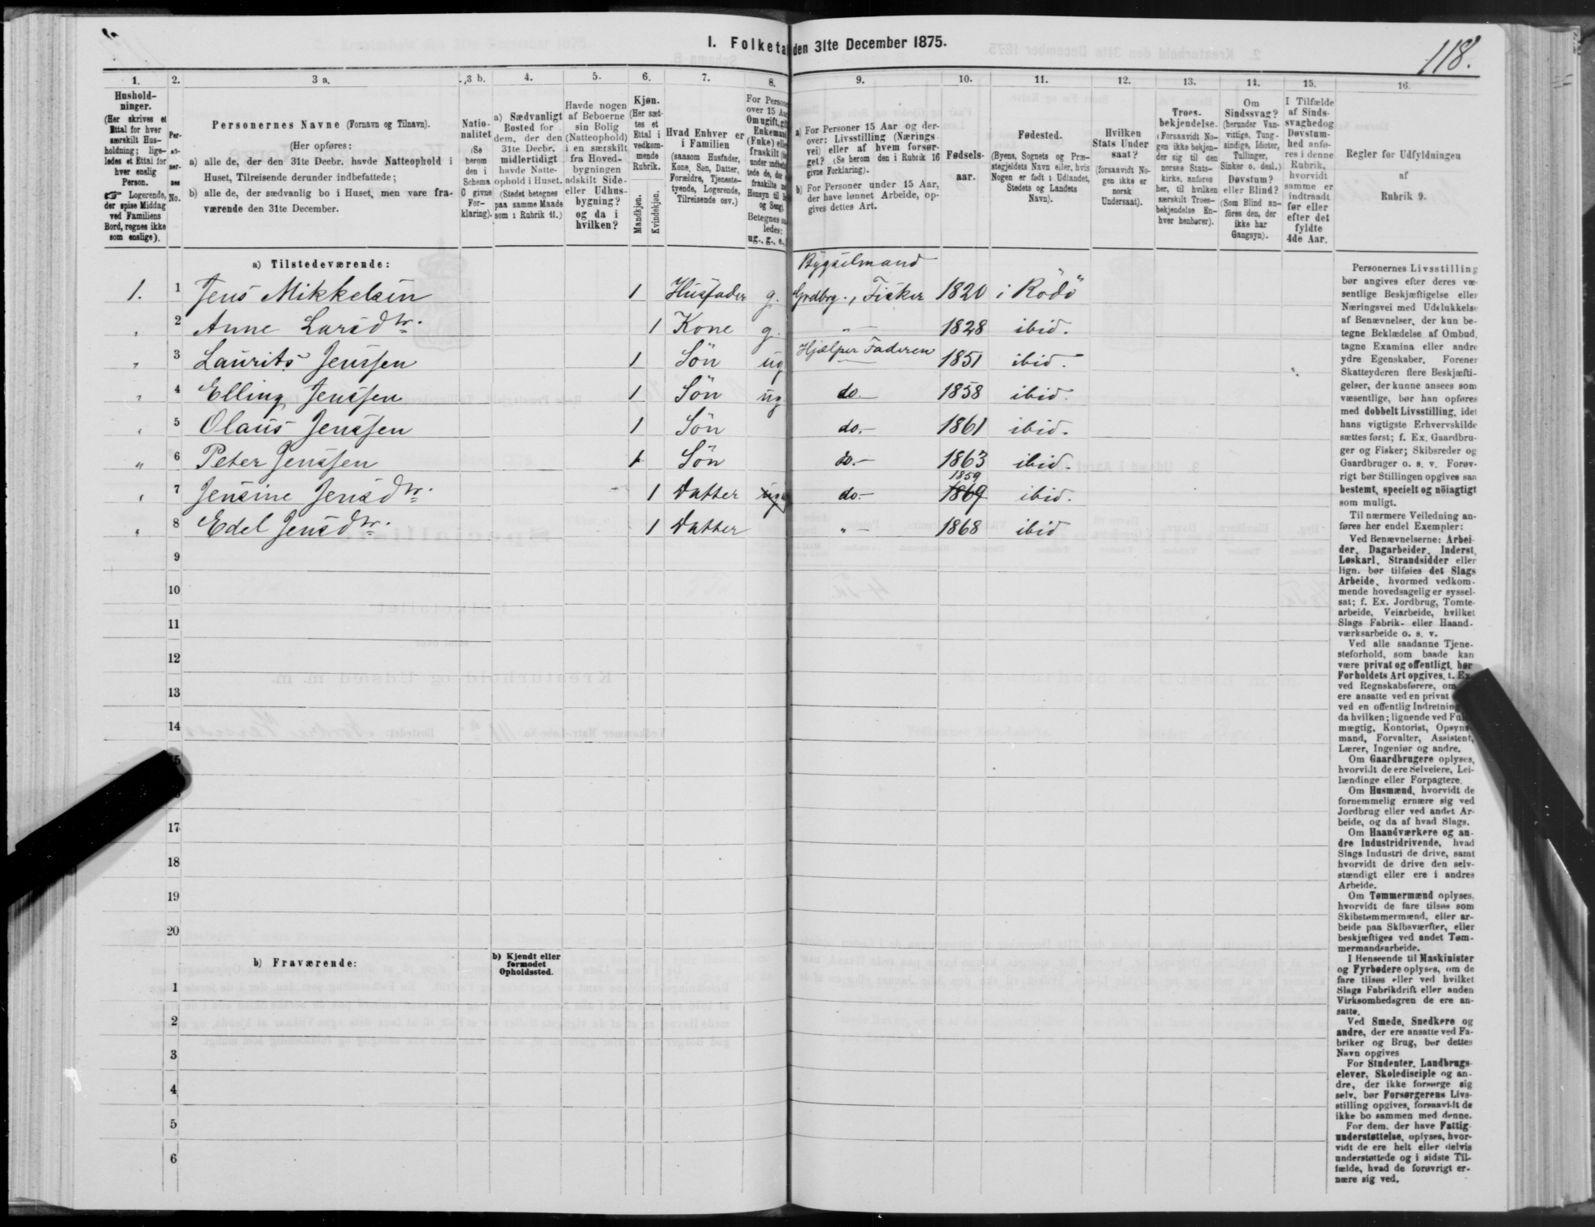 I. Folketal den 31te December 1875.
118.
1. 2. 3 a. 3 b. 4. 5. 6. 7. 8. 9. 10. 11. 12. 13. 14. 15. 16.
Husholdninger.
(Her skrives et Ettal for hver særskilt Husholdning; ligeledes et Ettal for hver enslig Person.
☞ Logerende, der spise Middag ved Familiens Bord, regnes ikke som enslige).
Personernes No.
Personernes Navne (Fornavn og Tilnavn).
(Her opføres:
a) alle de, der den 31te Decbr. havde Natteophold i Huset, Tilreisende derunder indbefattede;
b) alle de, der sædvanlig bo i Huset, men vare fraværende den 31te December.
Nationalitet (Se herom den i Schema O givne Forklaring).
a) Sædvanligt Bosted for dem, der den 31te Decbr. midlertidigt havde Natteophold i Huset. (Stedet betegnes paa samme Maade som i Rubrik 11.)
Havde nogen af Beboerne sin Bolig (Natteophold) i en særskilt fra Hovedbygningen adskilt Side- eller Udhusbygning? og da i hvilken?
Kjøn. (Her sættes et Ettal i vedkommende Rubrik.
Mandkjøn.
Kvindekjøn.
Hvad Enhver er i Familien
(saasom Husfader, Kone, Søn, Datter, Forældre, Tjenestetyende, Logerende, Tilreisende osv.)
a) For Personer 15 Aar og derover: Livsstilling (Næringsvei) eller af hvem forsørget? (Se herom den i Rubrik 16 givne Forklaring).
b) For Personer under 15 Aar, der have lønnet Arbeide, opgives dettes Art.
Fødselsaar.
Fødested.
(Byens, Sognets og Præstegjeldets Navn eller, hvis Nogen er født i Udlandet, Stedets og Landets Navn).
Hvilken Stats Undersaat?
(forsaavidt Nogen ikke er norsk Undersaat).
Troesbekjendelse.
(Forsaavidt Nogen ikke bekjender sig til den norske Statskirke, anføres her, til hvilken særskilt Troesbekjendelse Enhver henhører).
Om Sindssvag? (herunder Vanvittige, Tungsindige, Idioter, Tullinger, Sinker o. desl.) Døvstum? eller Blind? (Som Blind anføres den, der ikke har Gangsyn).
I Tilfælde af Sindssvaghed og Døvstumhed anføres i denne Rubrik, hvorvidt samme er indtraadt før eller efter det fyldte 4de Aar.
Regler for Udfyldningen af Rubrik 9.
a) Tilstedeværende:
Bygselmand
1. 1 Jens Mikkelsen 1 Husfader g. Grdbrg., Fisker 1820 i Rødø
2 Anne Larsdtr. 1 Kone g. " 1828 ibid.
3 Laurits Jenssen 1 Søn ug Hjælper Faderen 1851 ibid.
4 Elling Jenssen 1 Søn ug do. 1858 ibid.
5 Olaus Jenssen 1 Søn do. 1861 ibid.
6 Peter Jenssen 1 Søn do. 1863 ibid.
1859
7 Jensine Jensdtr. 1 Datter ug do. 1869 ibid.
8 Edel Jensdtr. 1 Datter " 1868 ibid
9
10
11
12
13
14
17
18
19
20
b) Fraværende:
b) Kjendt eller formodet Opholdssted.
1
2
3
4
5
6
Personernes Livsstilling bør angives efter deres væsentlige Beskjæftigelse eller Næringsvei med Udelukkelse af Benævnelser, der kun betegne Beklædelse af Ombud, tagne Examina eller andre ydre Egenskaber. Forener Skatteyderen flere Beskjæftigelser, der kunne ansees som væsentlige, bør han opføres med dobbelt Livsstilling, idet hans vigtigste Erhvervskilde sættes først; f. Ex. Gaardbruger og Fisker; Skibsreder og Gaardbruger o. s. v. Forøvrigt bør Stillingen opgives saa bestemt, specielt og nöiagtigt som muligt.
Til nærmere Veiledning anføres her endel Exempler:
Ved Benævnelserne: Arbeider, Dagarbeider, Inderst, Løskarl, Strandsidder eller lign. bør tilføies det Slags Arbeide, hvormed vedkommende hovedsagelig er sysselsat; f. Ex. Jordbrug, Tomtearbeide, Veiarbeide, hvilket Slags Fabrik- eller Haandværksarbeide o. s. v.
Ved alle saadanne Tjenesteforhold, som baade kan være privat og offentligt, bør Forholdets Art opgives, t. Ex. ved Regnskabsførere, om
Om Gaardbrugere oplyses, hvorvidt de ere Selveiere, Leilændinge eller Forpagtere.
Om Husmænd, hvorvidt de fornemmelig ernære sig ved Jordbrug eller ved andet Arbeide, og da af hvad Slags.
Om Haandværkere og andre Industridrivende, hvad Slags Industri de drive, samt hvorvidt de drive den selvstændigt eller ere i andres Arbeide.
Om Tømmermænd oplyses, hvorvidt de fare tilsøs som Skibstømmermænd, eller arbeide paa Skibsværfter, eller beskjæftiges ved andet Tømmermandsarbeide.
I Henseende til Maskinister og Fyrbødere oplyses, om de fare tilsøs eller ved hvilket Slags Fabrikdrift eller anden Virksomhedsgren de ere ansatte.
Ved Smede, Snedkere og andre, der ere ansatte ved Fabriker og Brug, bør dettes Navn opgives
For Studenter, Landbrugselever, Skoledisciple og andre, der ikke forsørge sig selv, bør Forsørgerens Livsstilling opgives, forsaavidt de ikke bo sammen med denne.
For dem, der have Fattigunderstøttelse, oplyses, hvorvidt de ere helt eller delvis understøttede og i sidste Tilfælde, hvad de forøvrigt ernære sig ved.